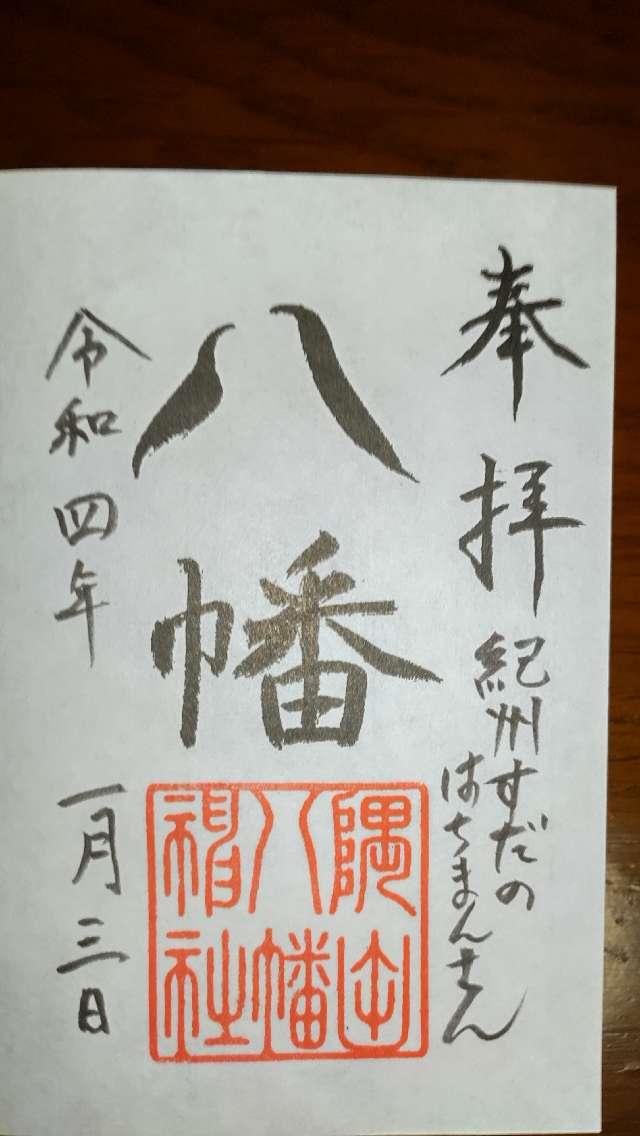 奉拝
紀州すだの
はちまんさん
八幡
隅田
八幡
神社
令和四年
一月三日